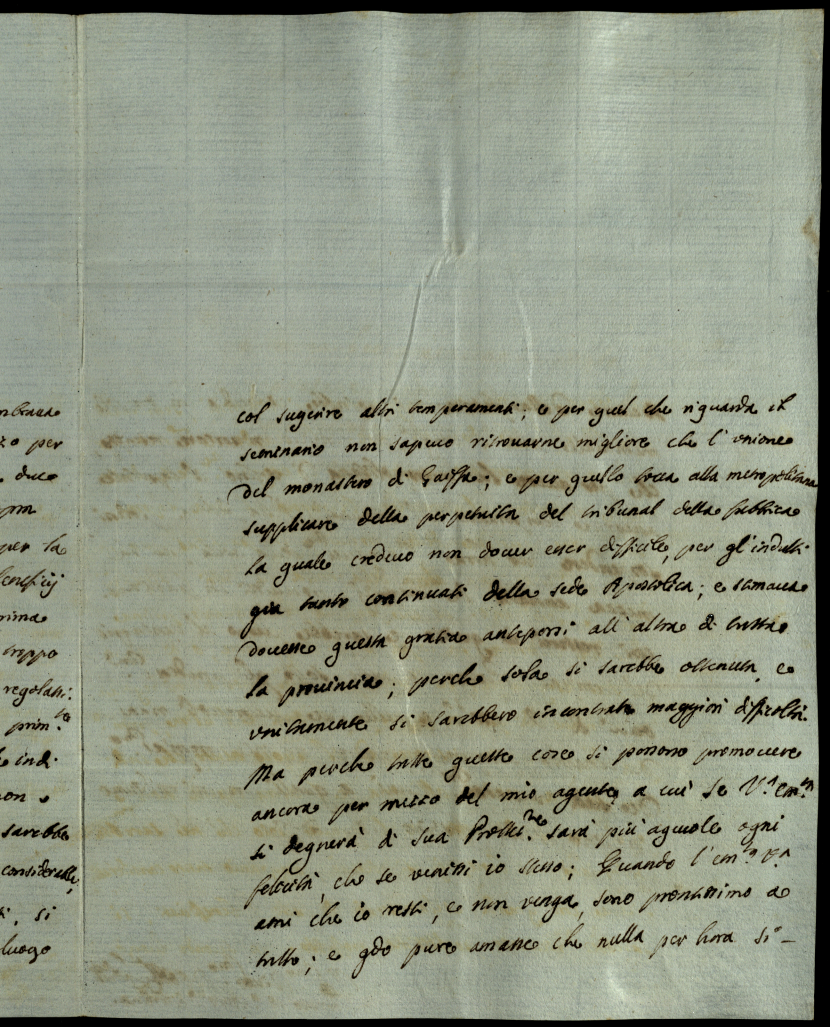 nbraua
zo per
due
pra
per la
benefitij
rima
troppo
regolati.
prim.te
indi
non e
sarebbe
considerabile,
si
luogo
col sugerire altri temperamenti; e per quel che riguarda il
seminario non sapeuo ritrouarne migliore che l'unione
del monastero di ; e per quello tocca alla metropolitana
supplicare della perpetuita del tribunal della fabbrica
la quale credeuo non douer esser difficile, per gl'indulti
gia tanto continuati della sede Apostolica; e stimauo
douesse questa gratia anteporsi all'altra di tutta
la prouincia; perche sola si sarebbe ottenuta, e
unitamente si sarebbero incontrate maggiori difficolta.
Ma perche tutte queste cose si possono promouere
ancora per mezzo del mio agente, a cui se V.a Em.za
si degnerà di sua Protet.ne sarà più ageuole ogni
felicità, che se uenissi io stesso; Quando l'em.za V.a
ami che io resti, e non venga, sono prontissimo a
tutto; e q.do pure amasse che nulla per hora si -